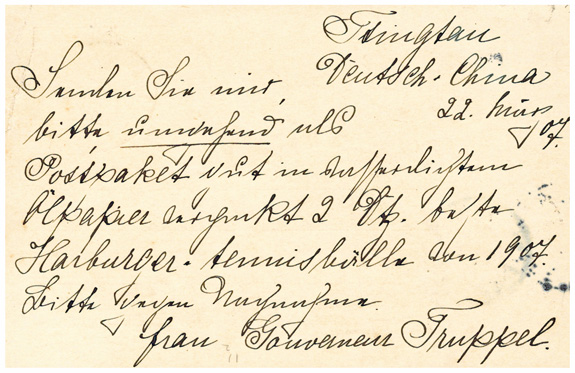 Tsingtau
Deutsch-China
22. März 07.
Senden Sie mir,
bitte, umgehend als
Postpaket gut in wasserdichtem
Ölpapier verpackt 2 Dtz. beste
Harburger-tennisbälle von 1907.
Bitte gegen Nachnahme.
Frau Gouverneur Truppel.